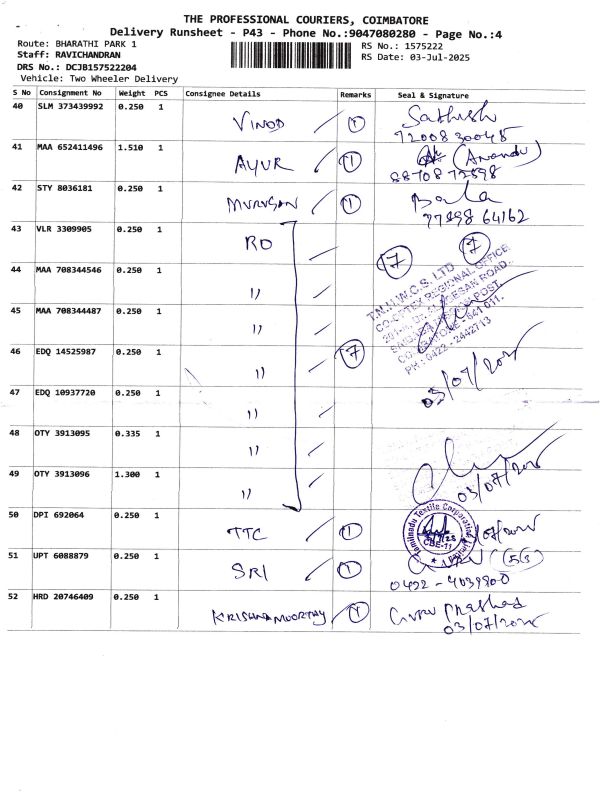 THE PROFESSIONAL COURIERS, COIMBATORE
Delivery Runsheet - P43 - Phone No.:9047080280 - Page No.:4
Route: BHARATHI PARK 1
RS No.: 1575222
Staff: RAVICHANDRAN
RS Date: 03-Jul-2025
DRS No.: DCJB157522204
Vehicle: Two Wheeler Delivery
S No Consignment No Weight PCS Consignee Details Remarks Seal & Signature
40 SLM 373439992 0.250 1 VINOD 1 Sathish
72008 30048
41 MAA 652411496 1.510 1 AYUR 1 (Anandu)
88708 72898
42 STY 8036181 0.250 1 MURUGAN 1 Bala
77898 64162
43 VLR 3309905 0.250 1 RO 7 7
44 MAA 708344546 0.250 1 11
45 MAA 708344487 0.250 1 11
CO-OPTEX REGIONAL OFFICE
PH : 0422 - 2442713
46 EDQ 14525987 0.250 1 11 7
03/07/2025
47 EDQ 10937720 0.250 1 11
48 OTY 3913095 0.335 1 11
49 OTY 3913096 1.300 1 11
03/07/2025
50 DPI 692064 0.250 1 TTC 1
Tamilnadu Textile Corporation Limited
CBE-11
51 UPT 6088879 0.250 1 SRI 1
0422 - 4039800
52 HRD 20746409 0.250 1 KRISHNAMOORTHY 1 Guru Prashad
03/07/2025